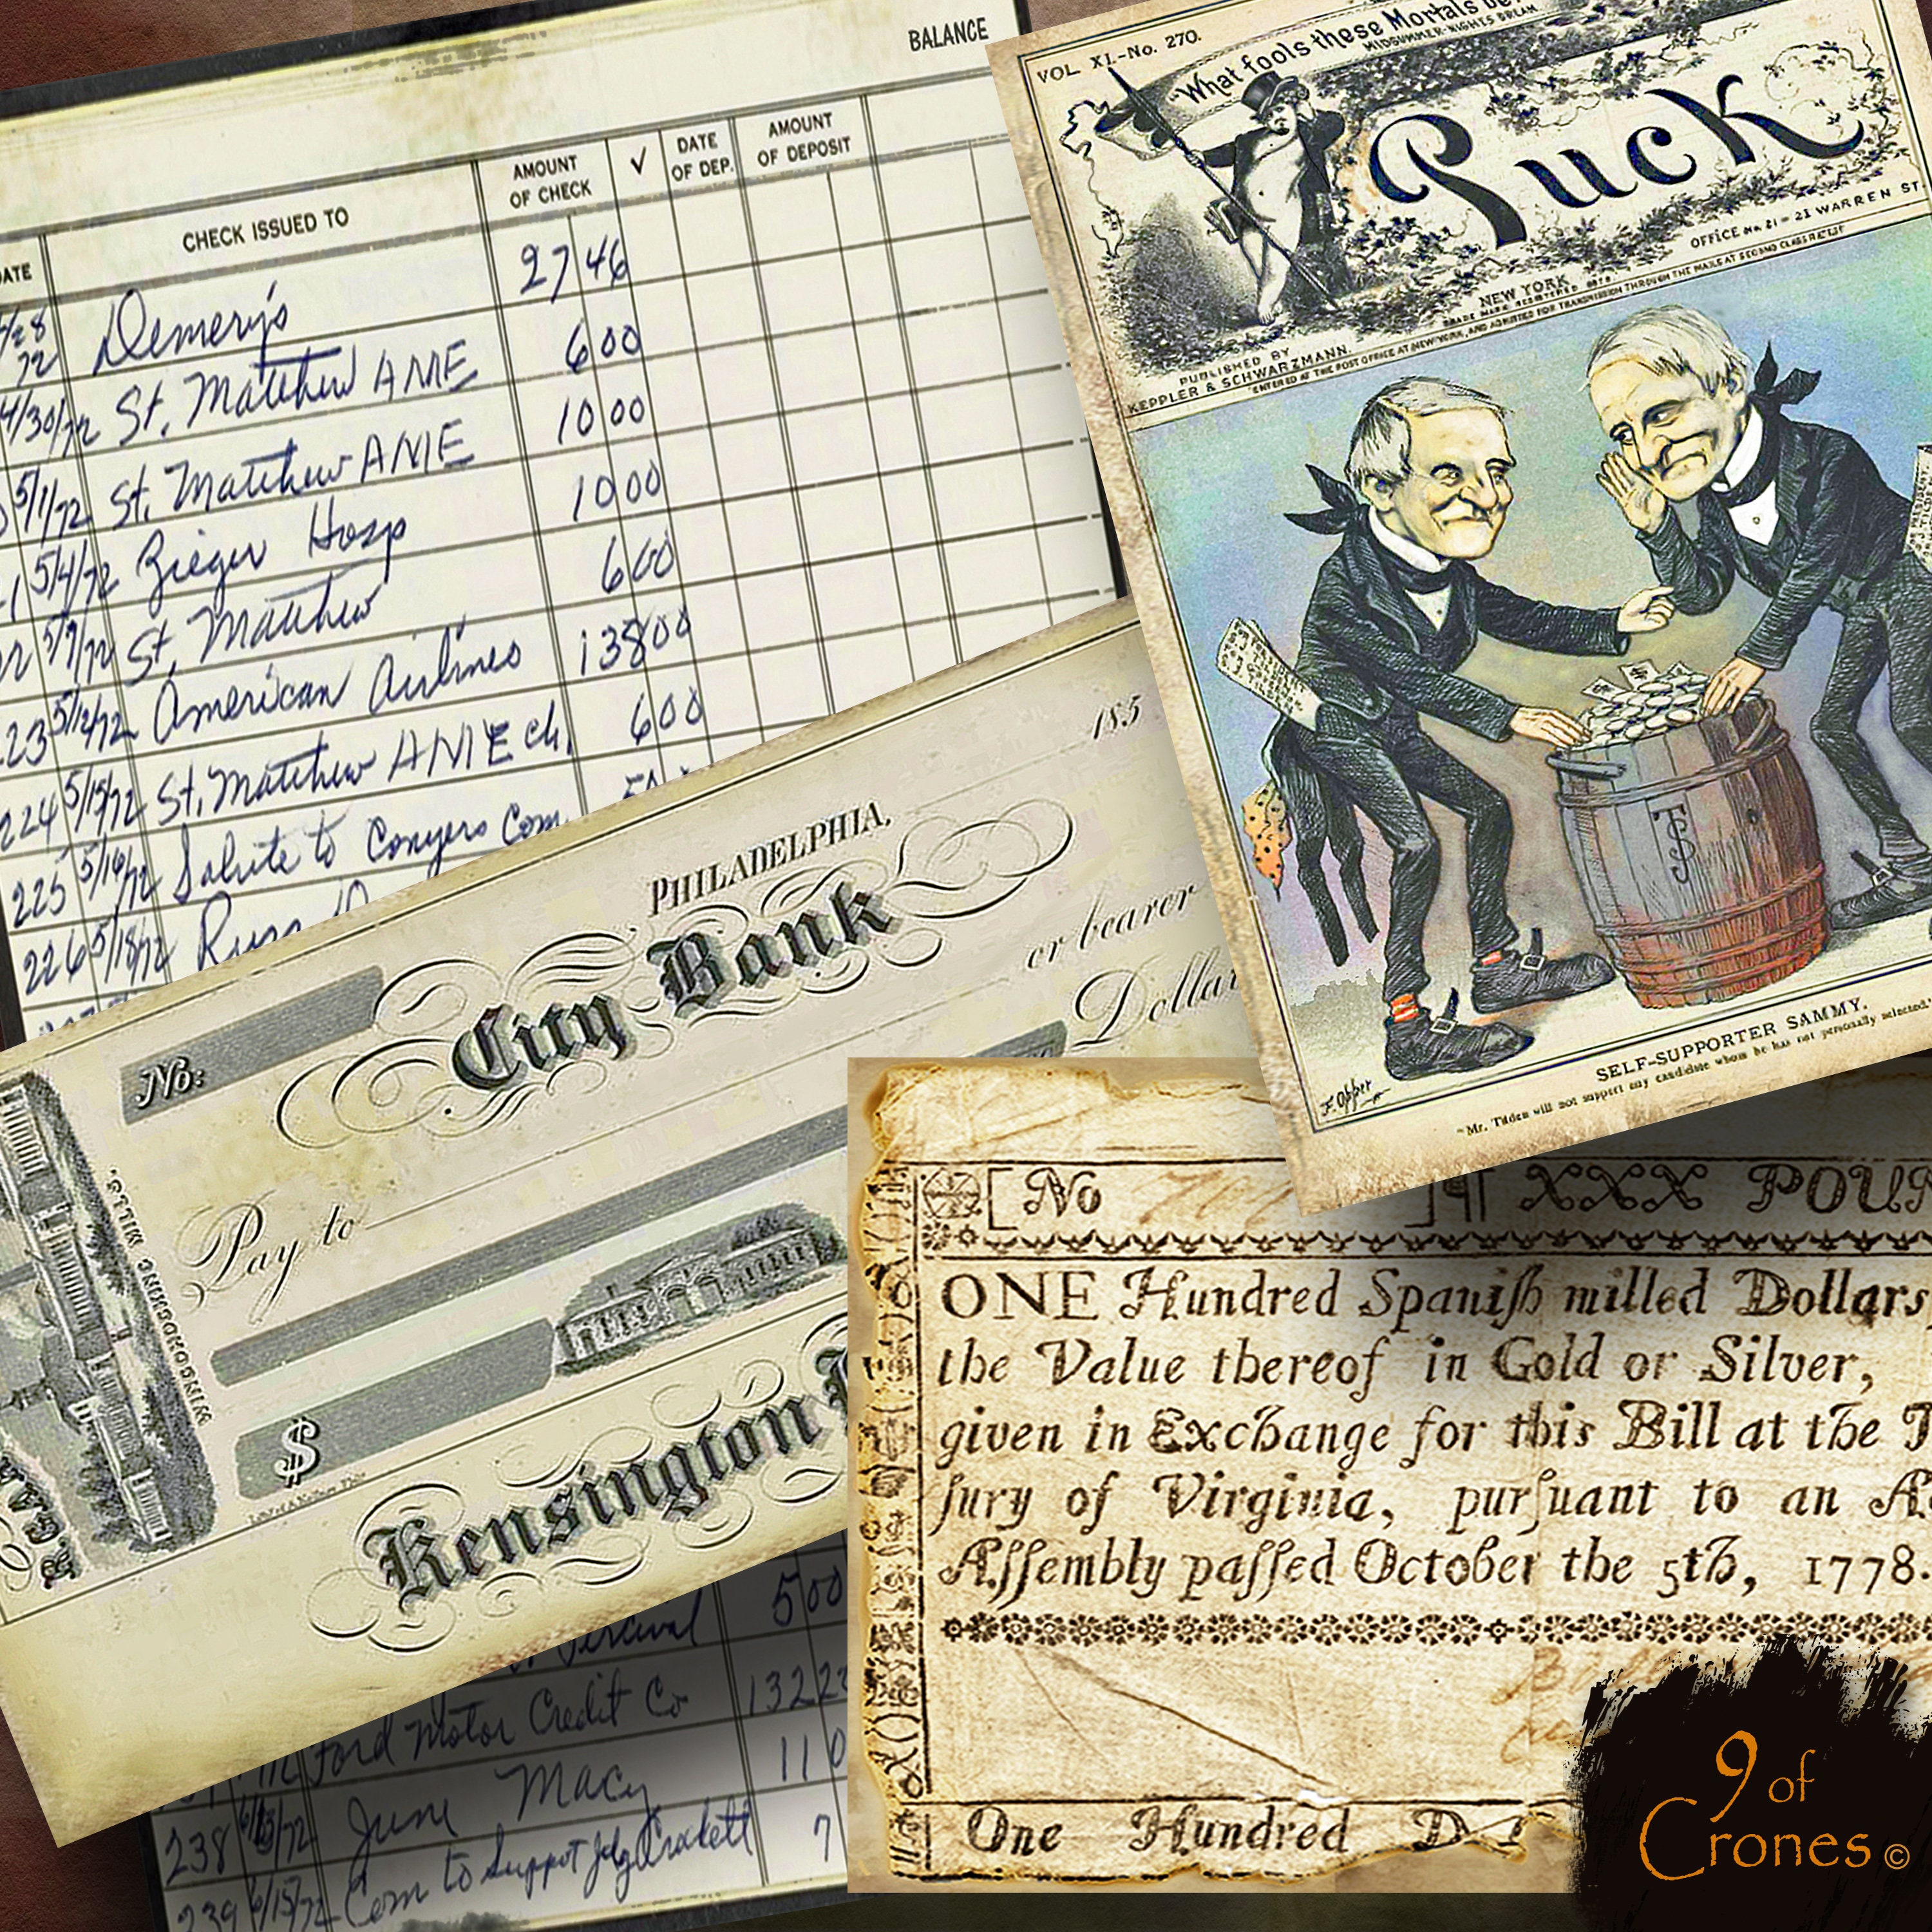 BALANCE
DATE
CHECK ISSUED TO
AMOUNT
OF CHECK
√
DATE
OF DEP.
AMOUNT
OF DEPOSIT
4/28
72 Demery's 27 46
4/30/72 St. Matthew AME 6 00
5/1/72 St. Matthew AME 10 00
5/4/72 Zieger Hosp 10 00
5/7/72 St. Matthew 6 00
223 5/12/72 American Airlines 138 00
224 5/15/72 St. Matthew AME ch. 6 00
225 5/16/72 Salute to Conyers Com.
226 5/18/72
500
Ford Motor Credit Co 132 22
June Macy 11 0
238 6/13/72
239 6/15/72 Com to Support Jdg Crockett 7
PHILADELPHIA,
185
City Bank
No:
or bearer
Pay to
Dollar
$
Kensington
VOL. XI.—No. 270.
"What fools these Mortals be!
MIDSUMMER-NIGHTS DREAM
Puck
OFFICE No. 21 - 23 WARREN ST
NEW YORK
TRADE MARK REGISTERED 1878.
PUBLISHED BY
KEPPLER & SCHWARZMANN
"ENTERED AT THE POST OFFICE AT NEW YORK, AND ADMITTED FOR TRANSMISSION THROUGH THE MAILS AT SECOND CLASS RATES."
F. Opper
SELF-SUPPORTER SAMMY.
"Mr. Tilden will not support any candidate whom he has not personally selected."
No
XXX POUN
ONE Hundred Spaniſh milled Dollars,
the Value thereof in Gold or Silver,
given in Exchange for this Bill at the T
ſury of Virginia, purſuant to an A
Aſſembly paſſed October the 5th, 1778.
One Hundred
9 of
Crones ©